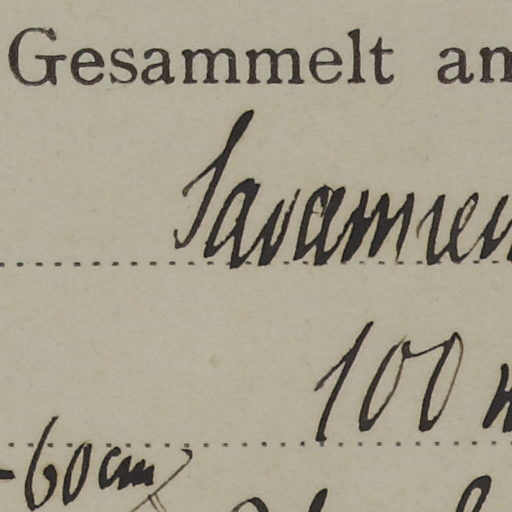 Gesammelt am
Savannen
100 m
-60 cm